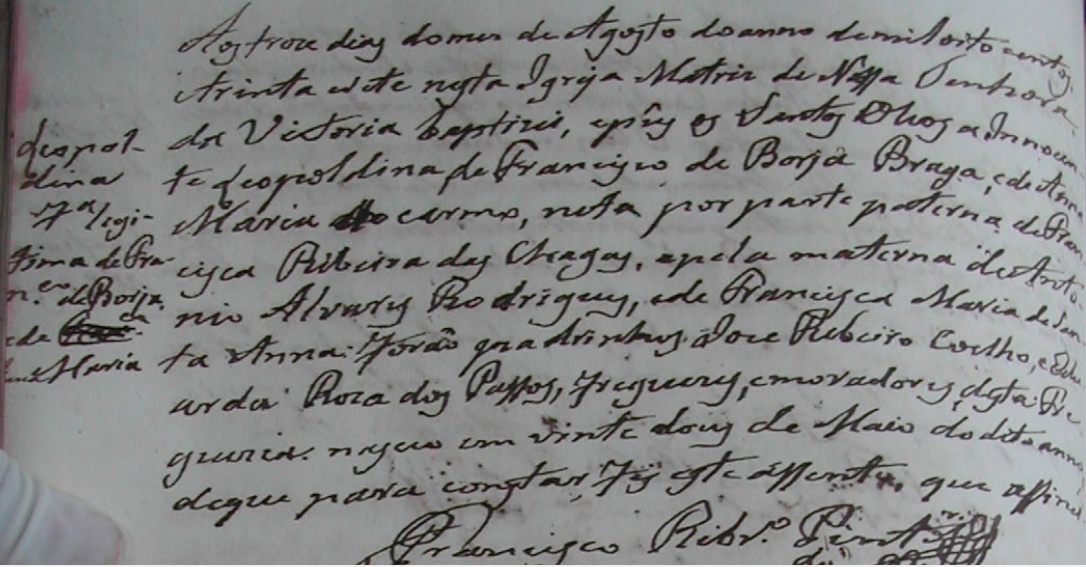 Leopol-
dina
F.ª legi-
tima de Fra-
n.co de Borja
e de
Maria
Aos treze dias do mes de Agosto do anno de mil oito centos
e trinta e sete nesta Igreja Matriz de Nossa Senhora
da Victoria baptizei, e puz os Santos Oleos a Innocen
te Leopoldina, de Francisco de Borja Braga, e de Anna
Maria do Carmo, neta por parte paterna de Fran
cisca Ribeira das Chagas, e pela materna de Anto
nio Alvares Rodrigues, e de Francisca Maria de San
ta Anna: Forão padrinhos: Joze Ribeiro Coelho, e Edu
arda Roza dos Passos, Freguezes, e moradores desta Fre
guezia: nasceo em vinte dous de Maio do dito anno
de que para constar, Fiz este assento, que assinei
Francisco Ribr.º Pinto